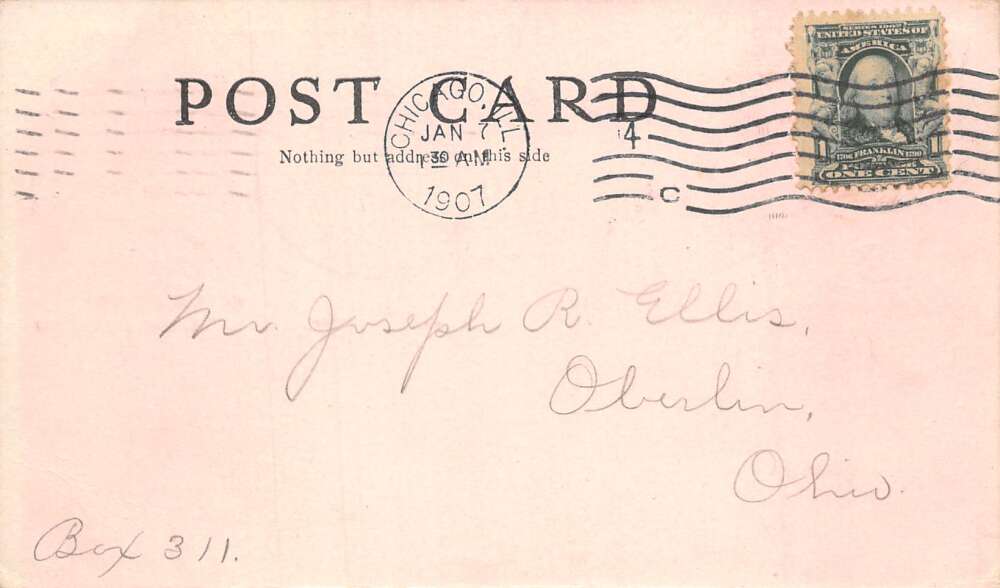 SERIES 1902
UNITED STATES OF
AMERICA
POST CARD
CHICAGO, ILL.
JAN 7
1 30 AM
1907
4
C
Nothing but address on this side
1706 FRANKLIN 1790
1 1
ONE CENT
Mr. Joseph R. Ellis,
Oberlin,
Ohio.
Box 311.